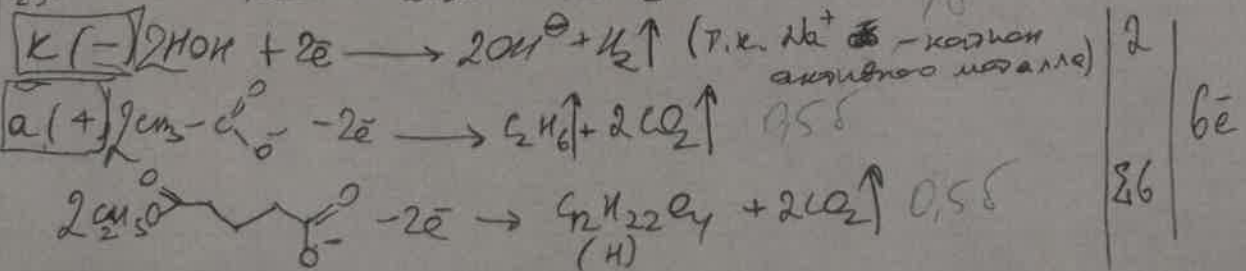 K (-) 2HOH + 2ē → 2OH⊖ + H₂↑ (т.к. Na⁺ - катион
активного металла) 2
a (+) 2CH₃-C(O)O⁻ -2ē → C₂H₆↑ + 2CO₂↑ 0,5б 6ē
2C₂H₅O O O O⁻ -2ē → C₁₂H₂₂O₄ + 2CO₂↑ 0,5б
(H)